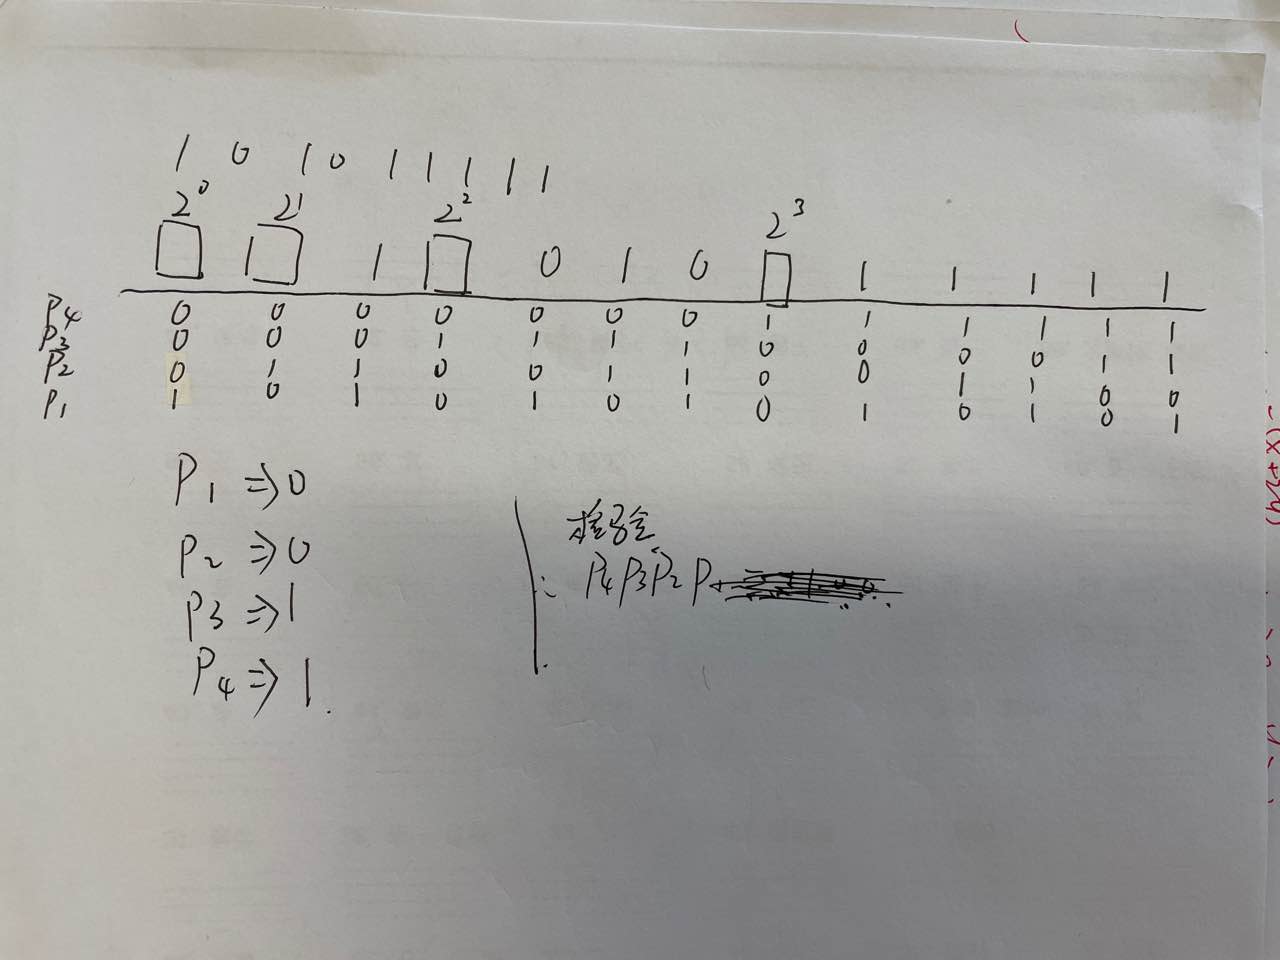 1 0 1 0 1 1 1 1 1
2⁰ 2¹ 2² 2³
1 0 1 0 1 1 1 1 1
P4 0 0 0 0 0 0 0 1 1 1 1 1 1
P3 0 0 0 1 1 1 1 0 0 0 0 1 1
P2 0 1 1 0 0 1 1 0 0 1 1 0 0
P1 1 0 1 0 1 0 1 0 1 0 1 0 1
P1 ⇒ 0
P2 ⇒ 0
P3 ⇒ 1
P4 ⇒ 1.
P4 P3 P2 P